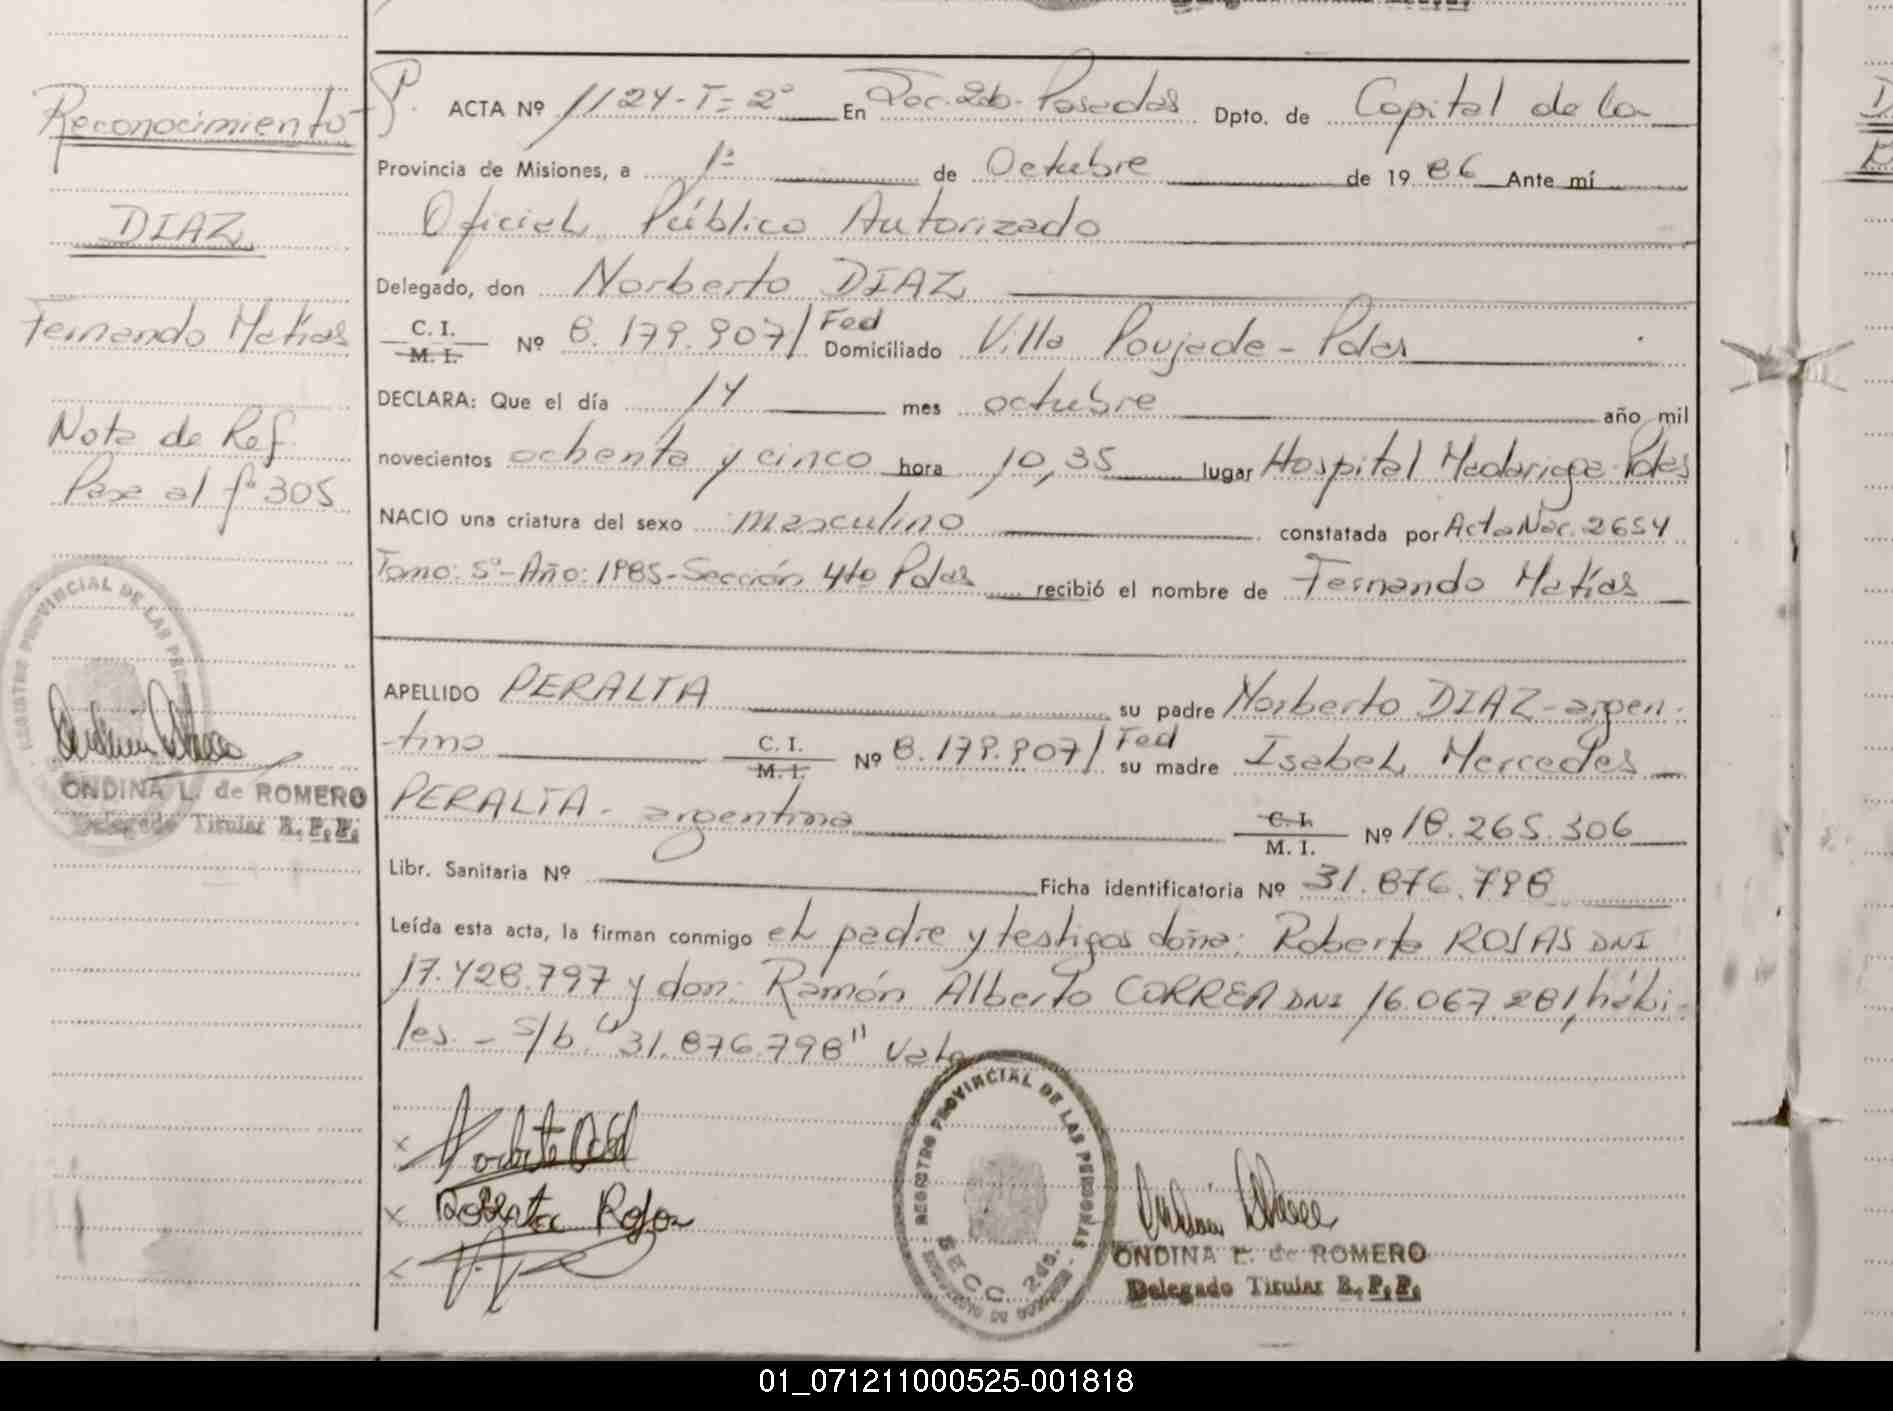 Reconocimiento
DIAZ
Fernando Matías
Nota de Ref.
Pasa al fº 305
REGISTRO PROVINCIAL DE LAS PERSONAS
ONDINA L. de ROMERO
Delegado Titular R. P. P.
ACTA Nº 1124-T=2º En Sec. 2da. Posadas Dpto. de Capital de la
Provincia de Misiones, a 1º de Octubre de 1986 Ante mí
Oficial Público Autorizado
Delegado, don Norberto DIAZ
C. I. M. I. Nº 8.179.907/ Fed Domiciliado Villa Poujade - Pdas
DECLARA: Que el día 14 mes octubre año mil
novecientos ochenta y cinco hora 10,35 lugar Hospital Madariaga-Pdas
NACIO una criatura del sexo masculino constatada por Acta Nac. 2654
Tomo: 5º-Año: 1985-Sección 4to Pdas recibió el nombre de Fernando Matías
APELLIDO PERALTA su padre Norberto DIAZ-argen-
-tino C. I. M. I. Nº 8.179.907/ Fed su madre Isabel Mercedes
PERALTA - argentina C. I. M. I. Nº 18.265.306
Libr. Sanitaria Nº Ficha identificatoria Nº 31.876.798
Leída esta acta, la firman conmigo el padre y testigos doña: Roberta ROJAS DNI
17.428.797 y don: Ramón Alberto CORREA DNI 16.067.281, hábi-
les. - s/b "31.876.798" Vale
REGISTRO PROVINCIAL DE LAS PERSONAS
SECC. 2da.
Roberta Rojas
ONDINA L. de ROMERO
Delegado Titular R. P. P.
01_071211000525-001818